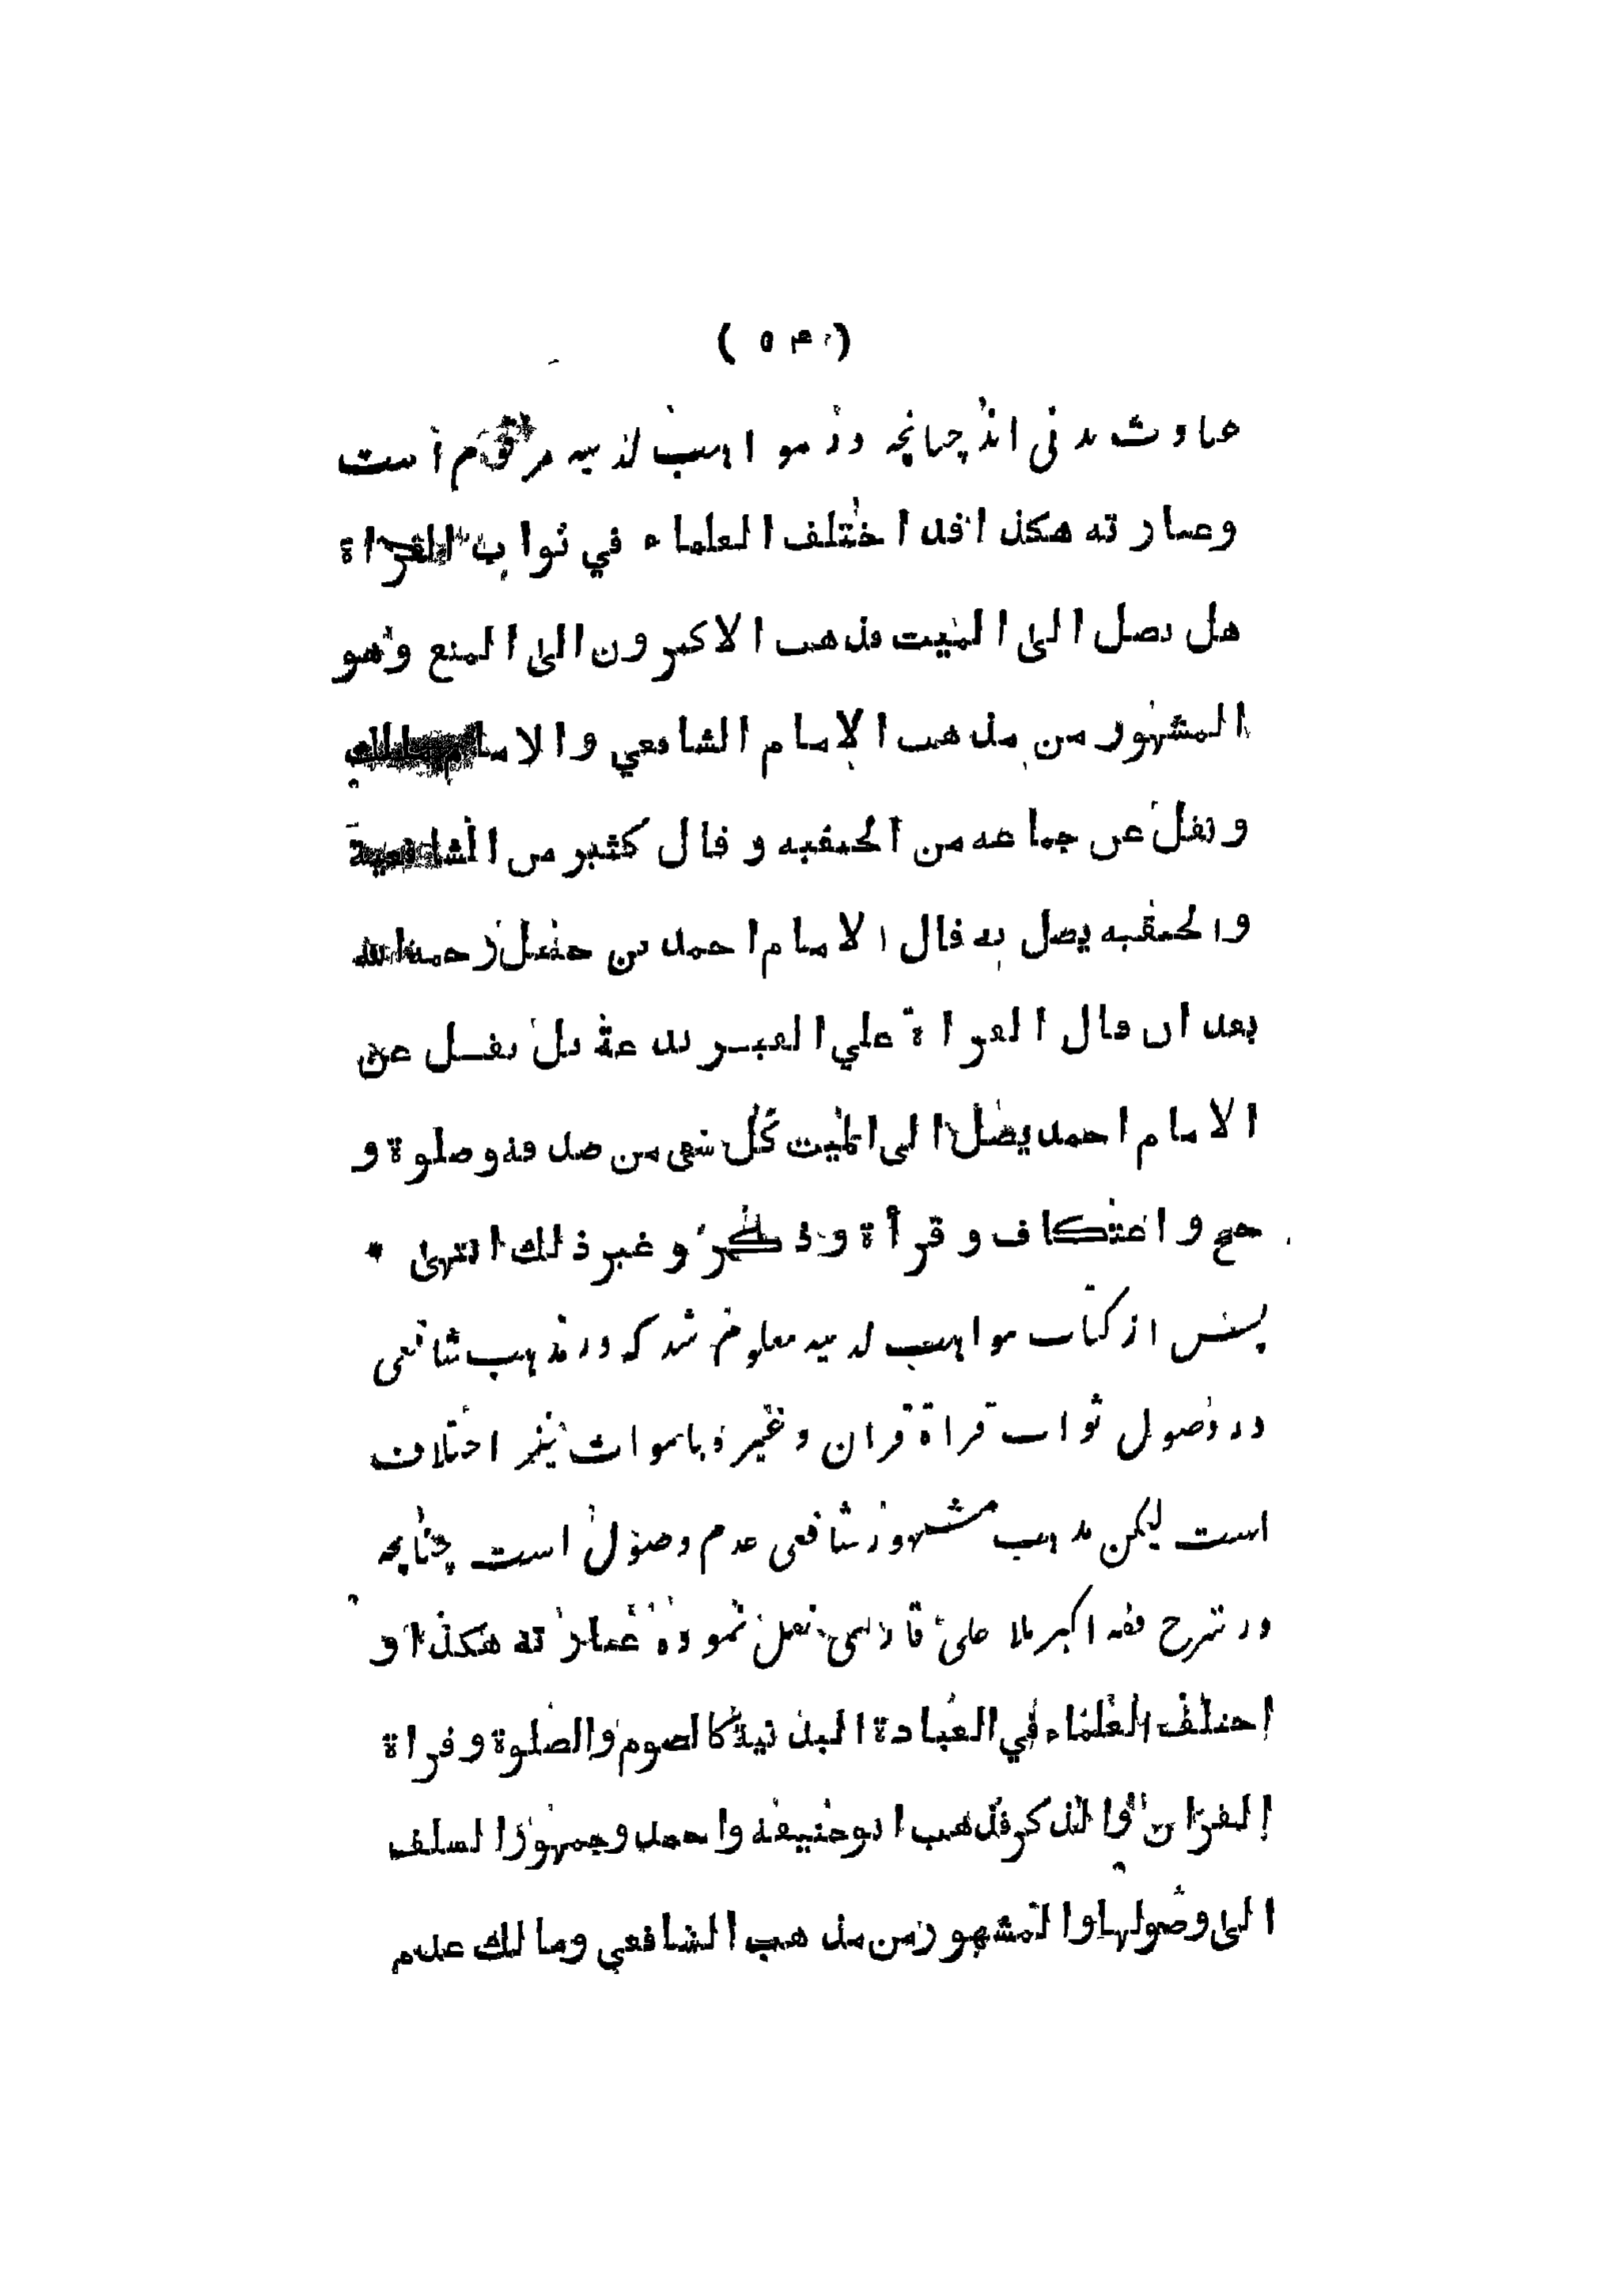 ( ۵۴ )
عبادت بدنی اند چنانچه در مواهب لدنیه مرقوم است
وعبارته هكذا قد اختلف العلماء في ثواب القراة
هل يصل الى الميت فذهب الاكثرون الى المنع وهو
المشهور من مذهب الامام الشافعي والامام مالك
ونقل عن جماعه من الحنفيه وقال كثير من الشافعية
والحنفيه يصل به قال الامام احمد بن حنبل رحمه الله
بعد ان قال القراة علي القبر بدعة بل نقل عن
الامام احمد يصل الى الميت كل شی من صدقه وصلوة و
حج واعتكاف وقرأة وذكر وغير ذلك انتهى *
پس از کتاب مواهب لدنیه معلوم شد که در مذهب شافعی
در وصول ثواب قراة قران وغیره باموات نیز اختلاف
است لیکن مذهب مشهور شافعی عدم وصول است چنانچه
در شرح فقه اکبر ملا علی قاری نقل نموده عبارته هكذا و
اختلف العلماء في العبادة البدنية كالصوم والصلوة وقراة
القران والذكر فذهب ابو حنيفه واحمد وجمهور السلف
الى وصولها والمشهور من مذهب الشافعي ومالك عدم